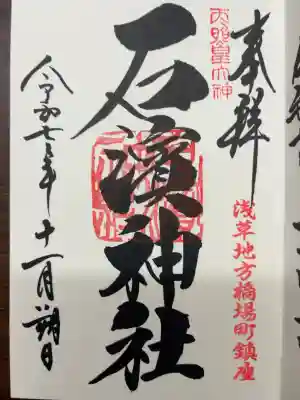 奉拝
天照皇大神
浅草地方橋場町鎮座
石濱神社
令和七年十一月朔日